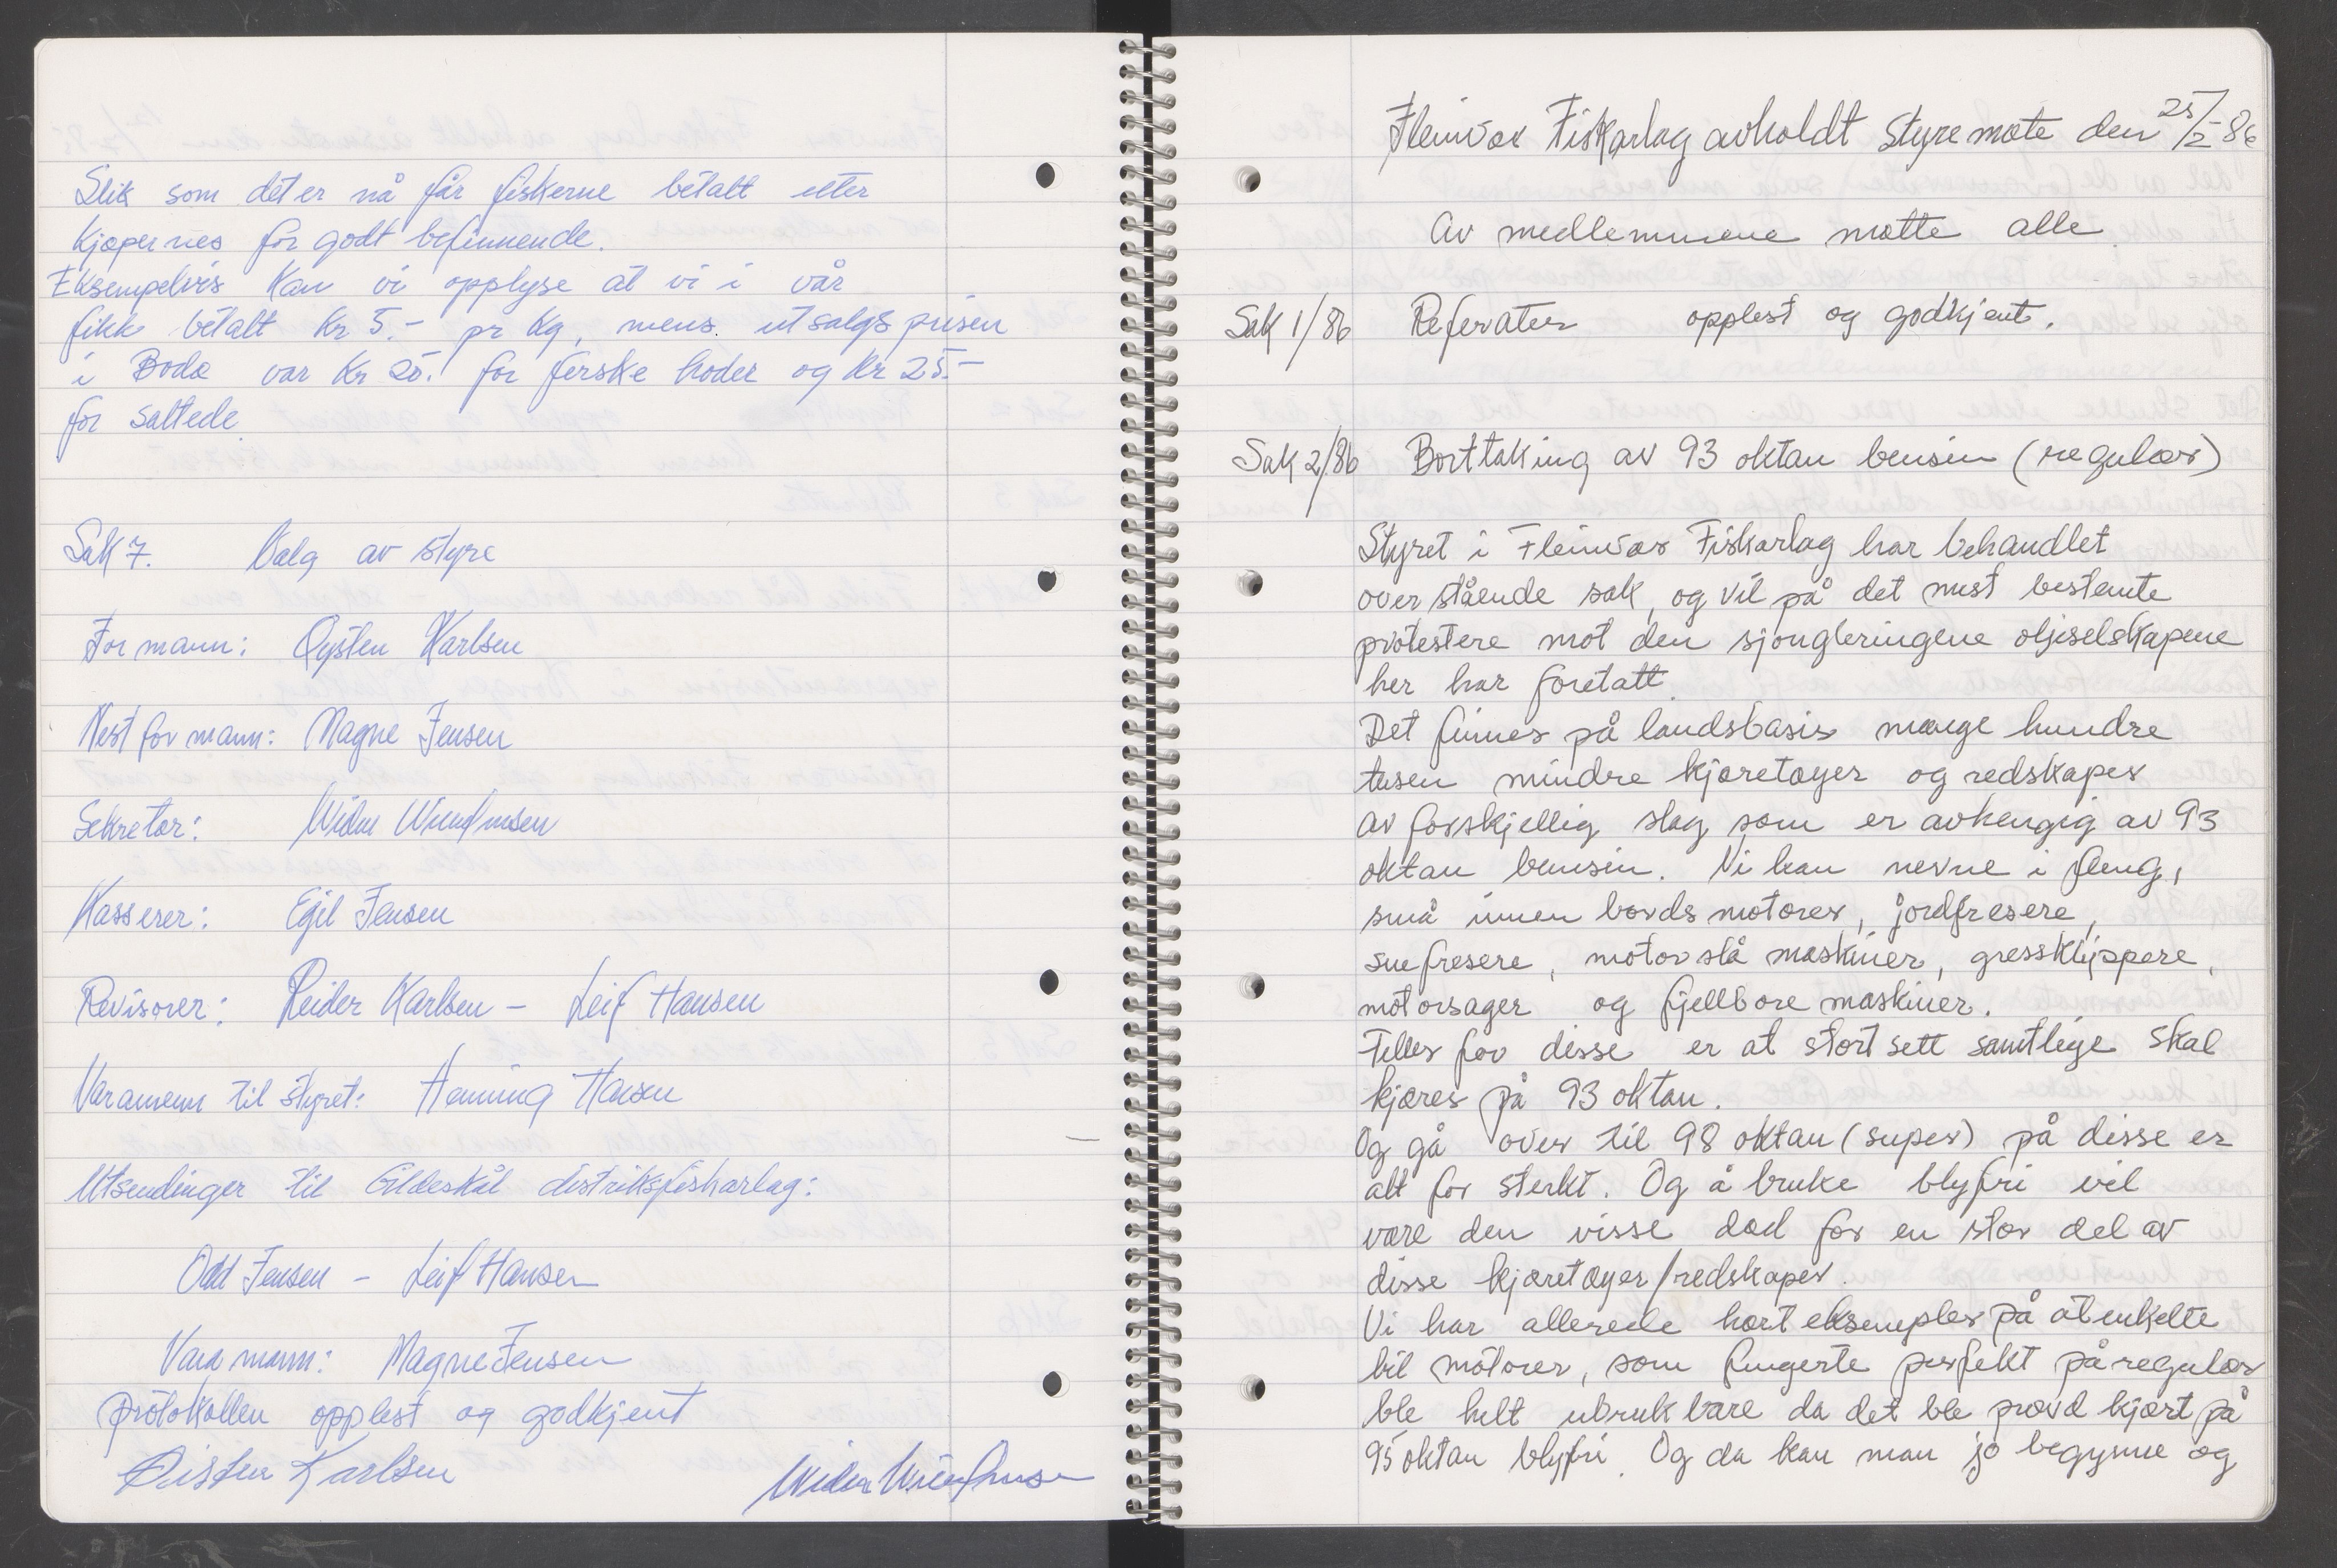 Slik som det er nå får fiskerne betalt etter
kjøpernes for godt befinnende.
Eksempelvis kan vi opplyse at vi i vår
fikk betalt kr 5.- pr kg, mens utsalgsprisen
i Bodø var kr 20.- for ferske hoder og kr 25.-
for saltede.
Sak 7. Valg av styre
Formann: Øysten Karlsen
Nest formann: Magne Jensen
Sekretær:
Kasserer: Egil Jensen
Revisorer: Reider Karlsen - Leif Hansen
Varamenn til styret: Henning Hansen
Utsendinger til Gildeskål distriksfiskarlag:
Odd Jensen - Leif Hansen
Vara mann: Magne Jensen
protokollen opplest og godkjent
Øisten Karlsen
Fleinvær Fiskarlag avholdt styremøte den 25/2-86
Av medlemmene møtte alle.
Sak 1/86 Referater opplest og godkjent.
Sak 2/86 Borttaking av 93 oktan bensin (regulær)
Styret i Fleinvær Fiskarlag har behandlet
overstående sak, og vil på det mest bestemte
protestere mot den sjongleringene oljeselskapene
her har foretatt.
Det finnes på landsbasis mange hundre
tusen mindre kjøretøyer og redskaper
av forskjellig slag som er avhengig av 93
oktan bensin. Vi kan nevne i fleng,
små innenbords motorer, jordfresere,
snefresere, motorslå maskiner, gressklippere,
motorsager og fjellbore maskiner.
Felles for disse er at stort sett samtlige skal
kjøres på 93 oktan.
Og gå over til 98 oktan (super) på disse er
alt for sterkt. Og å bruke blyfri vil
være den visse død for en stor del av
disse kjøretøyer/redskaper.
Vi har allerede hørt eksempler på at enkelte
bil motorer, som fungerte perfekt på regulær
ble helt ubrukbare da det ble prøvd kjørt på
95 oktan blyfri. Og da kan man jo begynne og